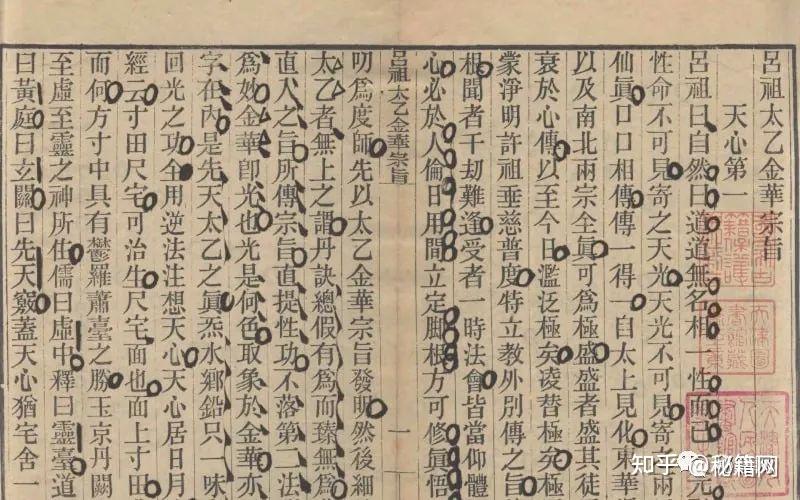 呂祖太乙金華宗旨
天心第一
呂祖曰自然曰道道無名相一性而已一元
性命不可見寄之天光天光不可見寄
仙眞口口相傳傳一得一自太上見化東華
以及南北兩宗全眞可爲極盛盛者盛其徒
衰於心傳以至今日濫泛極矣凌替極矣極
蒙淨明許祖垂慈普度特立教外別傳之旨
根聞者千劫難逢受者一時法會皆當仰體
心必於人倫日用間立定脚根方可修眞悟
呂祖太乙金華宗旨
一
叨爲度師先以太乙金華宗旨發明然後細
太乙者無上之謂丹訣總假有爲而臻無爲
直人之旨所傳宗旨直提性功不落第二法
爲妙金華卽光也光是何色取象於金華亦
字在內是先天太乙之眞炁水鄉鉛只一味
回光之功全用逆法注想天心天心居日月
經云寸田尺宅可治生尺宅面也面上寸田
而何方寸中具有鬱羅蕭臺之勝玉京丹闕
至虛至靈之神所住儒曰虛中釋曰靈臺道
曰黃庭曰玄關曰先天竅蓋天心猶宅舍一
知乎 @秘籍网